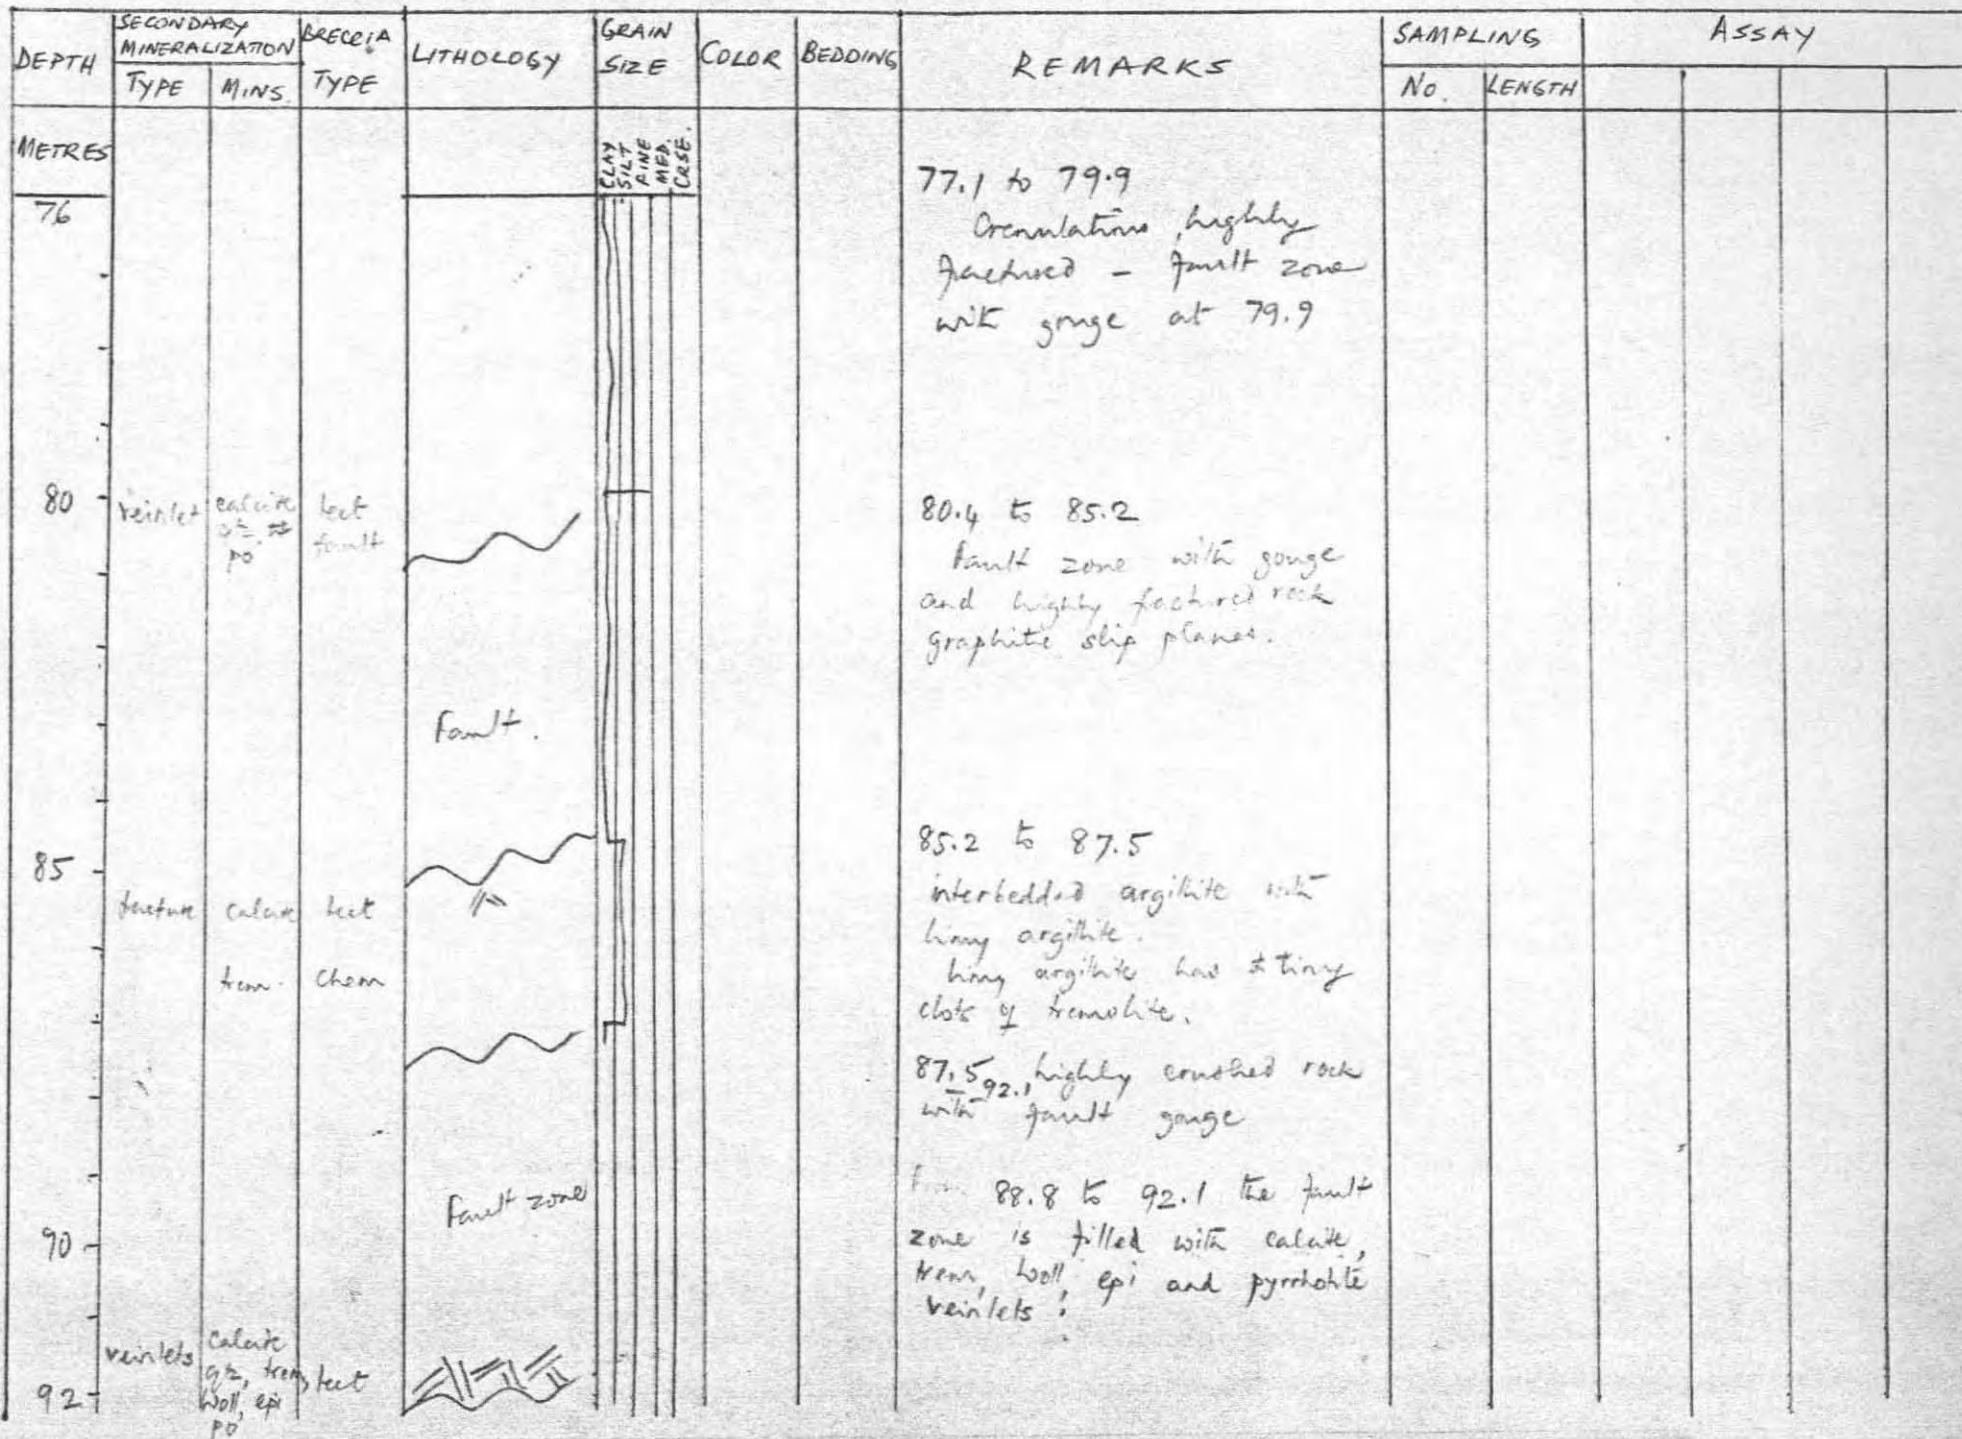 DEPTH
SECONDARY
MINERALIZATION
TYPE
MINS.
BRECCIA
TYPE
LITHOLOGY
GRAIN
SIZE
COLOR
BEDDING
REMARKS
SAMPLING
No.
LENGTH
ASSAY
METRES
CLAY
SILT
FINE
MED.
CRSE.
76
77.1 to 79.9
Crenulations, highly
fractured - fault zone
with gouge at 79.9
80
veinlet
calcite
qtz
po
tect
fault
80.4 to 85.2
Fault zone with gouge
and highly factured rock
graphite slip planes.
Fault.
85
85.2 to 87.5
interbedded argillite with
limy argillite.
limy argillite has tiny
clots of tremolite.
fracture
calcite
tect
trem.
chem
87.5 - 92.1, highly crushed rock
with fault gouge
Fault zone
From 88.8 to 92.1 the fault
zone is filled with calcite,
trem, woll, epi and pyrrhotite
veinlets.
90
veinlets
calcite
qtz, trem,
woll, epi
po
tect
92